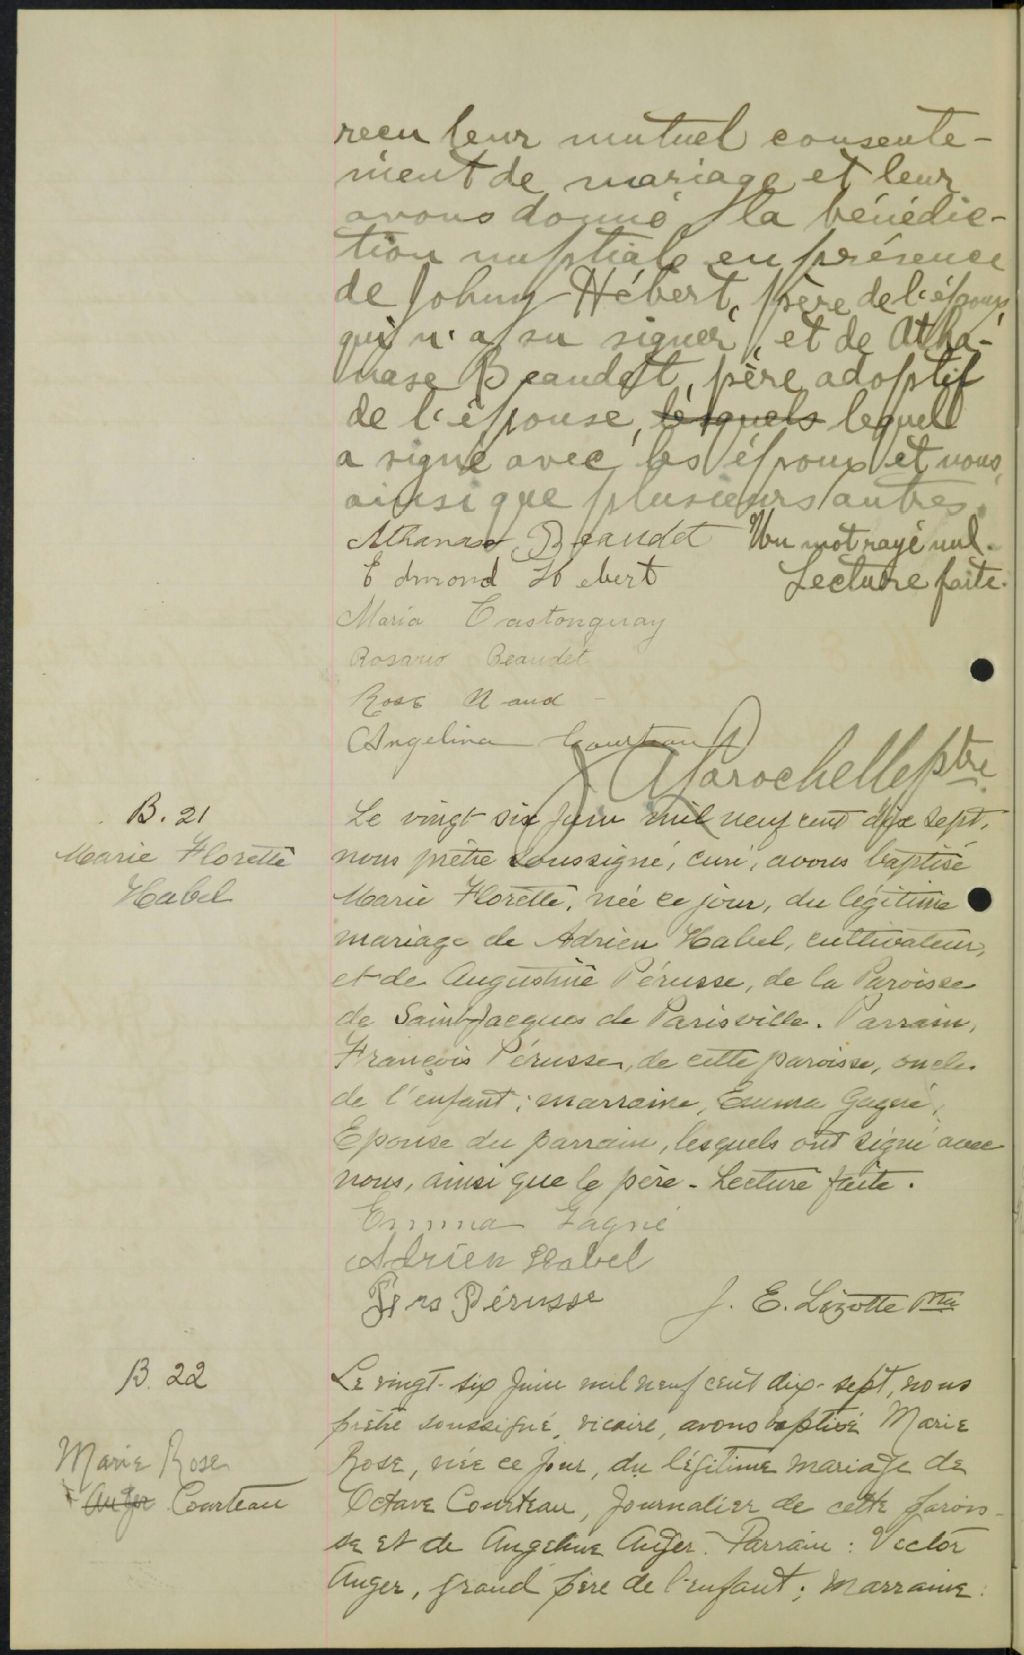 reçu leur mutuel consente-
ment de mariage et leur
avons donné la bénédic-
tion nuptiale en présence
de Johny Hébert, père de l'époux
qui n'a su signer, et de Atha-
nase Beaudet, père adoptif
de l'épouse, lesquels lequel
a signé avec les époux et nous,
ainsi que plusieurs autres.
Athanase Beaudet Un mot rayé nul.
Edmond Hebert Lecture faite.
Maria Castonguay
Rosario Beaudet
Rose Naud
Angelina Courteau
Larochelle ptre
B. 21
Marie Florette
Habel
Le vingt six Juin mil neuf cent dix sept,
nous prêtre soussigné, curé, avons baptisé
Marie Florette, née ce jour, du légitime
mariage de Adrien Habel, cultivateur,
et de Augustine Pérusse, de la Paroisse
de Saint-Jacques de Parisville. Parrain,
François Pérusse, de cette paroisse, oncle
de l'enfant; marraine, Emma Gagné,
Epouse du parrain, lesquels ont signé avec
nous, ainsi que le père - Lecture faite.
Emma Gagné
Adrien Habel
Frs Pérusse J. E. Lizotte Ptre
B. 22
Marie Rose
Auger Courteau
Le vingt-six Juin mil neuf cent dix-sept, nous
prêtre soussigné, vicaire, avons baptisé Marie
Rose, née ce jour, du légitime mariage de
Octave Courteau, Journalier de cette parois-
se et de Angeline Auger. Parrain: Vector
Auger, grand père de l'enfant; Marraine: